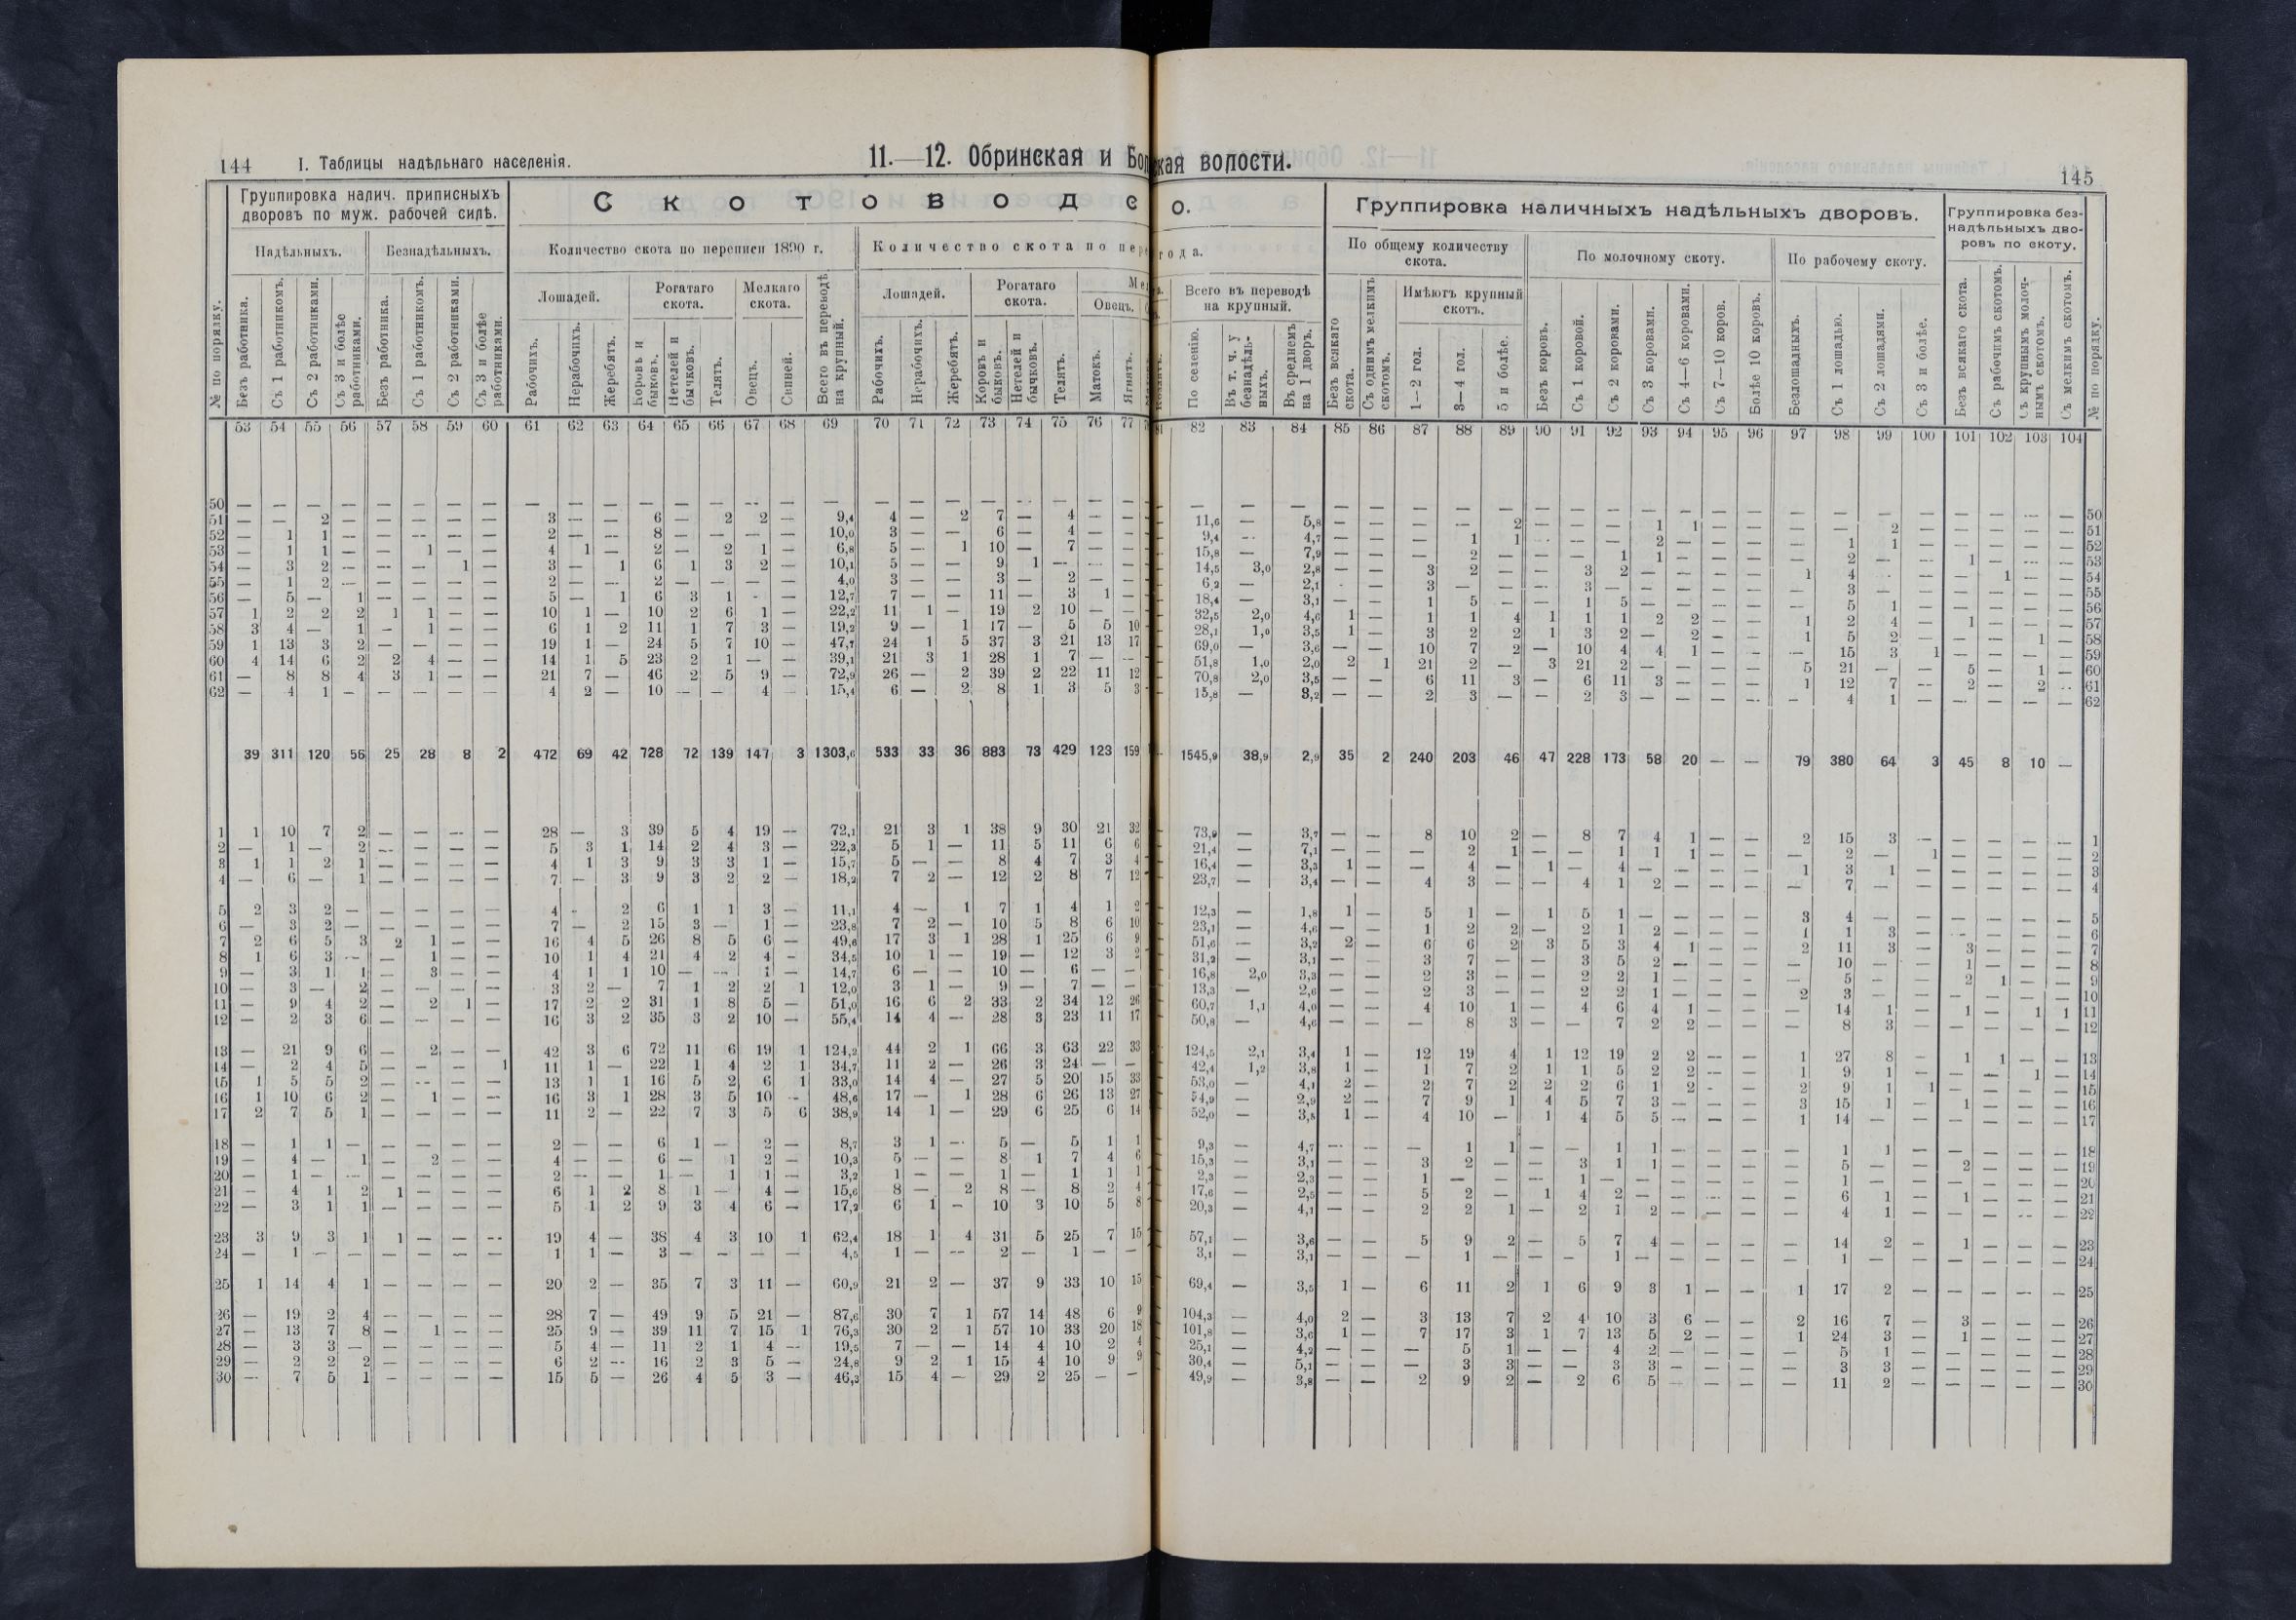 144 I. Таблицы надѣльнаго населенія.
11.—12. Обринская и Бол
ская волости.
145
Группировка налич. приписныхъ дворовъ по муж. рабочей силѣ.
С к о т о в о д с
о.
Группировка наличныхъ надѣльныхъ дворовъ.
Группировка без-надѣльныхъ дво-ровъ по скоту.
Надѣльныхъ. Безнадѣльныхъ. Количество скота по переписи 1890 г. Количество скота по пере
года.
По общему количеству скота. По молочному скоту. По рабочему скоту.
Лошадей. Рогатаго скота. Мелкаго скота. Лошадей. Рогатаго скота. Ме
Овецъ.
Всего въ переводѣ на крупный. Имѣютъ крупный скотъ.
№ по порядку. Безъ работника. Съ 1 работникомъ. Съ 2 работниками. Съ 3 и болѣе работниками. Безъ работника. Съ 1 работникомъ. Съ 2 работниками. Съ 3 и болѣе работниками. Рабочихъ. Нерабочихъ. Жеребятъ. Коровъ и быковъ. Нетелей и бычковъ. Телятъ. Овецъ. Свиней. Всего въ переводѣ на крупный. Рабочихъ. Нерабочихъ. Жеребятъ. Коровъ и быковъ. Нетелей и бычковъ. Телятъ. Матокъ. Ягнятъ.
По селенію. Въ т. ч. у безнадѣль-ныхъ. Въ среднемъ на 1 дворъ. Безъ всякаго скота. Съ однимъ мелкимъ скотомъ. 1—2 гол. 3—4 гол. 5 и болѣе. Безъ коровъ. Съ 1 коровой. Съ 2 коровами. Съ 3 коровами. Съ 4—6 коровами. Съ 7—10 коров. Болѣе 10 коровъ. Безлошадныхъ. Съ 1 лошадью. Съ 2 лошадями. Съ 3 и болѣе. Безъ всякаго скота. Съ рабочимъ скотомъ. Съ крупнымъ молоч-нымъ скотомъ. Съ мелкимъ скотомъ. № по порядку.
53 54 55 56 57 58 59 60 61 62 63 64 65 66 67 68 69 70 71 72 73 74 75 76 77
82 83 84 85 86 87 88 89 90 91 92 93 94 95 96 97 98 99 100 101 102 103 104
50 — — — — — — — — — — — — — — — — — — — — — — — — —
51 — — 2 — — — — — 3 — — 6 — 2 2 — 9,4 4 — 2 7 — 4 — —
52 — 1 1 — — — — — 2 — — 8 — — — — 10,0 3 — — 6 — 4 — —
53 — 1 1 — — 1 — — 4 1 — 2 — 2 1 — 6,8 5 — 1 10 — 7 — —
54 — 3 2 — — — 1 — 3 — 1 6 1 3 2 — 10,1 5 — — 9 1 — — —
55 — 1 2 — — — — — 2 — — 2 — — — — 4,0 3 — — 3 — 2 — —
56 — 5 — 1 — — — — 5 — 1 6 3 1 - — 12,7 7 — — 11 — 3 1 —
57 1 2 2 2 1 1 — — 10 1 — 10 2 6 1 — 22,2 11 1 — 19 2 10 — —
58 3 4 — 1 — 1 — — 6 1 2 11 1 7 3 — 19,2 9 — 1 17 — 5 5 10
59 1 13 3 2 — — — — 19 1 — 24 5 7 10 — 47,7 24 1 5 37 3 21 13 17
60 4 14 6 2 2 4 — — 14 1 5 23 2 1 — — 39,1 21 3 1 28 1 7 — —
61 — 8 8 4 3 1 — — 21 7 — 46 2 5 9 — 72,9 26 — 2 39 2 22 11 12
62 — 4 1 — — — — — 4 2 — 10 — — 4 — 15,4 6 — 2 8 1 3 5 3
39 311 120 56 25 28 8 2 472 69 42 728 72 139 147 3 1303,6 533 33 36 883 73 429 123 159
1 1 10 7 2 — — — — 28 — 3 39 5 4 19 — 72,1 21 3 1 38 9 30 21 32
2 — 1 — 2 — — — — 5 3 1 14 2 4 3 — 22,3 5 1 — 11 5 11 6 6
3 1 1 2 1 — — — — 4 1 3 9 3 3 1 — 15,7 5 — — 8 4 7 3 4
4 — 6 — 1 — — — — 7 — 3 9 3 2 2 — 18,2 7 2 — 12 2 8 7 12
5 2 3 2 — — — — — 4 - 2 6 1 1 3 — 11,1 4 — 1 7 1 4 1 2
6 — 3 2 — — — — — 7 — 2 15 3 — 1 — 23,8 7 2 — 10 5 8 6 10
7 2 6 5 3 2 1 — — 16 4 5 26 8 5 6 — 49,6 17 3 1 28 1 25 6 9
8 1 6 3 — — 1 — — 10 1 4 21 4 2 4 — 34,5 10 1 — 19 — 12 3 2
9 — 3 1 1 — 3 — — 4 1 1 10 — — 1 — 14,7 6 — — 10 — 6 — —
10 — 3 — 2 — — — — 3 2 — 7 1 2 2 1 12,0 3 1 — 9 — 7 — —
11 — 9 4 2 — 2 1 — 17 2 2 31 1 8 5 — 51,0 16 6 2 33 2 34 12 26
12 — 2 3 6 — — — — 16 3 2 35 3 2 10 — 55,4 14 4 — 28 3 23 11 17
13 — 21 9 6 — 2 — — 42 3 6 72 11 6 19 1 124,2 44 2 1 66 3 63 22 33
14 — 2 4 5 — — — 1 11 1 — 22 1 4 2 1 34,7 11 2 — 26 3 24 — —
15 1 5 5 2 — — — — 13 1 1 16 5 2 6 1 33,0 14 4 — 27 5 20 15 33
16 1 10 6 2 — 1 — — 16 3 1 28 3 5 10 — 48,6 17 — 1 28 6 26 13 27
17 2 7 5 1 — — — — 11 2 — 22 7 3 5 6 38,9 14 1 — 29 6 25 6 14
18 — 1 1 — — — — — 2 — — 6 1 — 2 — 8,7 3 1 — 5 — 5 1 1
19 — 4 — 1 — 2 — — 4 — — 6 — 1 2 — 10,3 5 — — 8 1 7 4 6
20 — 1 — — — — — — 2 — — 1 — 1 1 — 3,2 1 — — 1 — 1 1 1
21 — 4 1 2 1 — — — 6 1 2 8 1 — 4 — 15,6 8 — 2 8 — 8 2 4
22 — 3 1 1 — — — — 5 1 2 9 3 4 6 — 17,2 6 1 — 10 3 10 5 8
23 3 9 3 1 1 — — — 19 4 — 38 4 3 10 1 62,4 18 1 4 31 5 25 7 15
24 — 1 — — — — — — 1 1 — 3 — — — — 4,5 1 — — 2 — 1 — —
25 1 14 4 1 — — — — 20 2 — 35 7 3 11 — 60,9 21 2 — 37 9 33 10 15
26 — 19 2 4 — — — — 28 7 — 49 9 5 21 — 87,6 30 7 1 57 14 48 6 9
27 — 13 7 8 — 1 — — 25 9 — 39 11 7 15 1 76,3 30 2 1 57 10 33 20 18
28 — 3 3 — — — — — 5 4 — 11 2 1 4 — 19,5 7 — — 14 4 10 2 4
29 — 2 2 2 — — — — 6 2 — 16 2 3 5 — 24,8 9 2 1 15 4 10 9 9
30 — 7 5 1 — — — — 15 5 — 26 4 5 3 — 46,3 15 4 — 29 2 25 — —
— — — — — — — — — — — — — — — — — — — — — — — 50
11,6 — 5,8 — — — — 2 — — — 1 1 — — — — 2 — — — — — 51
9,4 — 4,7 — — — 1 1 — — — 2 — — — — 1 1 — — — — — 52
15,8 — 7,9 — — — 2 — — — 1 1 — — — — 2 — — 1 — — — 53
14,5 3,0 2,8 — — 3 2 — — 3 2 — — — — 1 4 — — — 1 — — 54
6,2 — 2,1 — — 3 — — — 3 — — — — — — 3 — — — — — — 55
18,4 — 3,1 — — 1 5 — — 1 5 — — — — — 5 1 — — — — — 56
32,5 2,0 4,6 1 — 1 1 4 1 1 1 2 2 — — 1 2 4 — 1 — — — 57
28,1 1,0 3,5 1 — 3 2 2 1 3 2 — 2 — — 1 5 2 — — — 1 — 58
69,0 — 3,6 — — 10 7 2 — 10 4 4 1 — — — 15 3 1 — — — — 59
51,8 1,0 2,0 2 1 21 2 — 3 21 2 — — — — 5 21 — — 5 — 1 — 60
70,8 2,0 3,5 — — 6 11 3 — 6 11 3 — — — 1 12 7 — 2 — 2 — 61
15,8 — 3,2 — — 2 3 — — 2 3 — — — — — 4 1 — — — — — 62
1545,9 38,9 2,9 35 2 240 203 46 47 228 173 58 20 — — 79 380 64 3 45 8 10 —
73,9 — 3,7 — — 8 10 2 — 8 7 4 1 — — 2 15 3 — — — — — 1
21,4 — 7,1 — — — 2 1 — — 1 1 1 — — — 2 — 1 — — — — 2
16,4 — 3,3 1 — — 4 — 1 — 4 — — — — 1 3 1 — — — — — 3
23,7 — 3,4 — — 4 3 — — 4 1 2 — — — — 7 — — — — — — 4
12,3 — 1,8 1 — 5 1 — 1 5 1 — — — — 3 4 — — — — — — 5
23,1 — 4,6 — — 1 2 2 — 2 1 2 — — — 1 1 3 — — — — — 6
51,6 — 3,2 2 — 6 6 2 3 5 3 4 1 — — 2 11 3 — 3 — — — 7
31,2 — 3,1 — — 3 7 — — 3 5 2 — — — — 10 — — 1 — — — 8
16,8 2,0 3,3 — — 2 3 — — 2 2 1 — — — — 5 — — 2 1 — — 9
13,3 — 2,6 — — 2 3 — — 2 2 1 — — — 2 3 — — — — — — 10
60,7 1,1 4,0 — — 4 10 1 — 4 6 4 1 — — — 14 1 — 1 — 1 1 11
50,8 — 4,6 — — — 8 3 — — 7 2 2 — — — 8 3 — — — — — 12
124,5 2,1 3,4 1 — 12 19 4 1 12 19 2 2 — — 1 27 8 — 1 1 — — 13
42,4 1,2 3,8 1 — 1 7 2 1 1 5 2 2 — — 1 9 1 — — — 1 — 14
53,0 — 4,1 2 — 2 7 2 2 2 6 1 2 — — 2 9 1 1 — — — — 15
54,9 — 2,9 2 — 7 9 1 4 5 7 3 — — — 3 15 1 — 1 — — — 16
52,0 — 3,5 1 — 4 10 — 1 4 5 5 — — — 1 14 — — — — — — 17
9,3 — 4,7 — — — 1 1 — — 1 1 — — — — 1 1 — — — — — 18
15,3 — 3,1 — — 3 2 — — 3 1 1 — — — — 5 — — 2 — — — 19
2,3 — 2,3 — — 1 — — — 1 — — — — — — 1 — — — — — — 20
17,6 — 2,5 — — 5 2 — 1 4 2 — — — — — 6 1 — 1 — — — 21
20,3 — 4,1 — — 2 2 1 — 2 1 2 — — — — 4 1 — — — — — 22
57,1 — 3,6 — — 5 9 2 — 5 7 4 — — — — 14 2 — 1 — — — 23
3,1 — 3,1 — — — 1 — — — 1 — — — — — 1 — — — — — — 24
69,4 — 3,5 1 — 6 11 2 1 6 9 3 1 — — 1 17 2 — — — — — 25
104,3 — 4,0 2 — 3 13 7 2 4 10 3 6 — — 2 16 7 — 3 — — — 26
101,8 — 3,6 1 — 7 17 3 1 7 13 5 2 — — 1 24 3 — 1 — — — 27
25,1 — 4,2 — — — 5 1 — — 4 2 — — — — 5 1 — — — — — 28
30,4 — 5,1 — — — 3 3 — — 3 3 — — — — 3 3 — — — — — 29
49,9 — 3,8 — — 2 9 2 — 2 6 5 — — — — 11 2 — — — — — 30